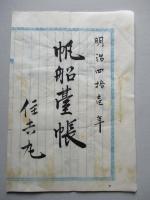 明治四拾壱年
帆船台帳
住吉丸